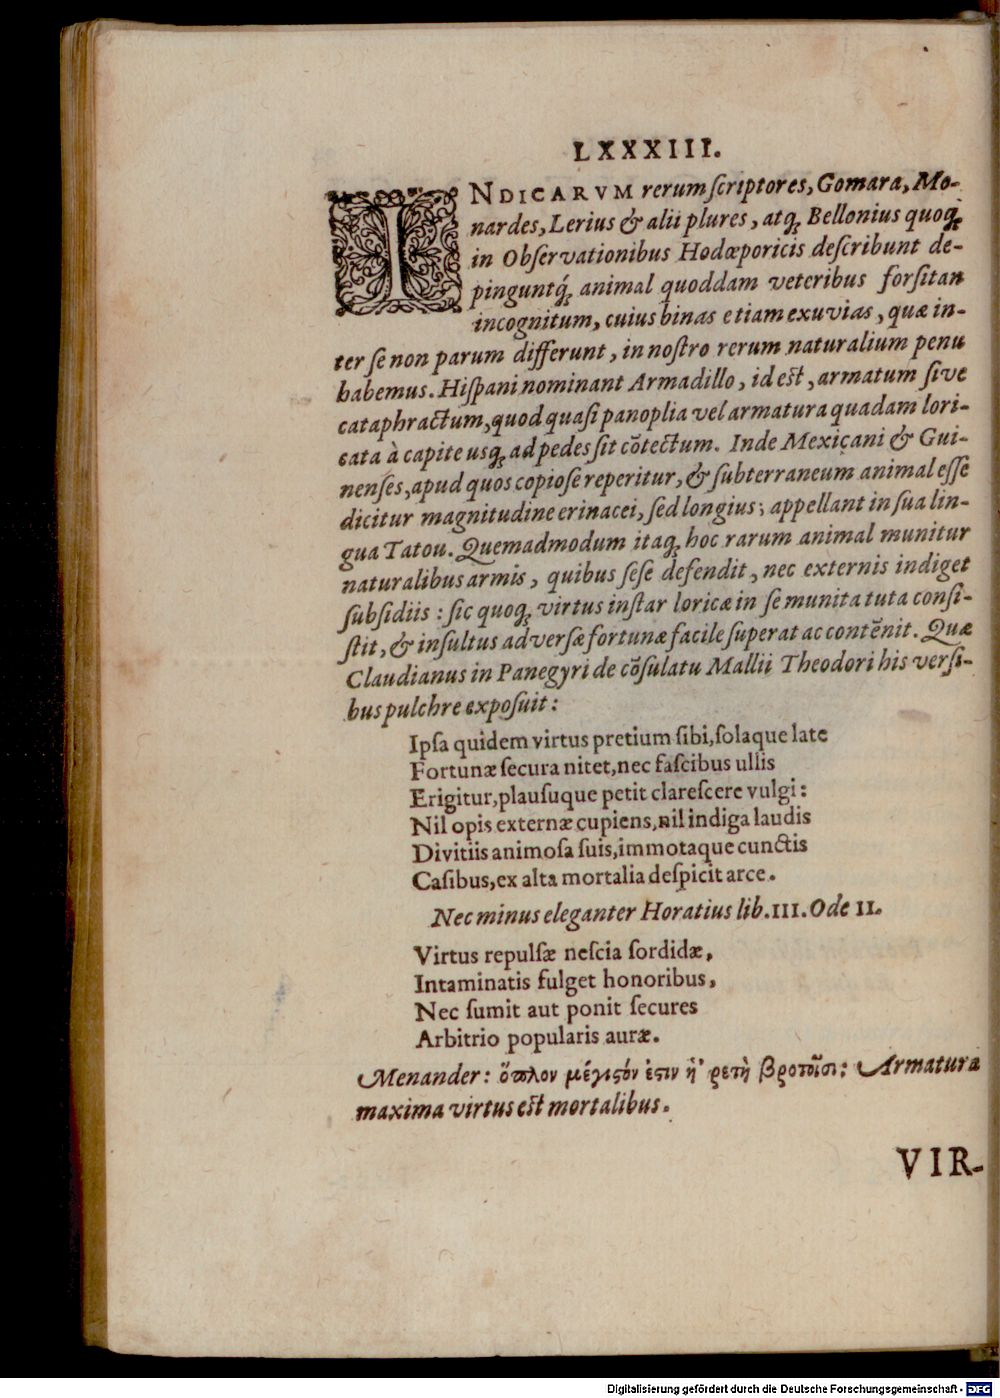 LXXXIII.
INDICARVM rerum ſcriptores, Gomara, Mo-
nardes, Lerius & alii plures, atq; Bellonius quoq;
in Obſervationibus Hodœporicis deſcribunt de-
pinguntq́; animal quoddam veteribus forſitan
incognitum, cuius binas etiam exuvias, quæ in-
ter ſe non parum differunt, in noſtro rerum naturalium penu
habemus. Hiſpani nominant Armadillo, id eſt, armatum ſive
cataphractum, quod quaſi panoplia vel armatura quadam lori-
cata à capite usq; ad pedes ſit cõtectum. Inde Mexicani & Gui-
nenſes, apud quos copioſe reperitur, & ſubterraneum animal eſſe
dicitur magnitudine erinacei, ſed longius; appellant in ſua lin-
gua Tatou. Quemadmodum itaq; hoc rarum animal munitur
naturalibus armis, quibus ſeſe defendit, nec externis indiget
ſubſidiis: ſic quoq; virtus inſtar loricæ in ſe munita tuta conſi-
ſtit, & inſultus adverſæ fortunæ facile ſuperat ac contẽnit. Quæ
Claudianus in Panegyri de cõſulatu Mallii Theodori his verſi-
bus pulchre expoſuit:
Ipſa quidem virtus pretium ſibi, ſolaque late
Fortunæ ſecura nitet, nec faſcibus ullis
Erigitur, plauſuque petit clareſcere vulgi:
Nil opis externæ cupiens, nil indiga laudis
Divitiis animoſa ſuis, immotaque cunctis
Caſibus, ex alta mortalia deſpicit arce.
Nec minus eleganter Horatius lib. III. Ode II.
Virtus repulſæ neſcia ſordidæ,
Intaminatis fulget honoribus,
Nec ſumit aut ponit ſecures
Arbitrio popularis auræ.
Menander: ὅπλον μέγιϛόν ἐϛιν ἡ' ρετὴ βροτοῖσι; Armatura
maxima virtus eſt mortalibus.
VIR-
Digitalisierung gefördert durch die Deutsche Forschungsgemeinschaft - DFG